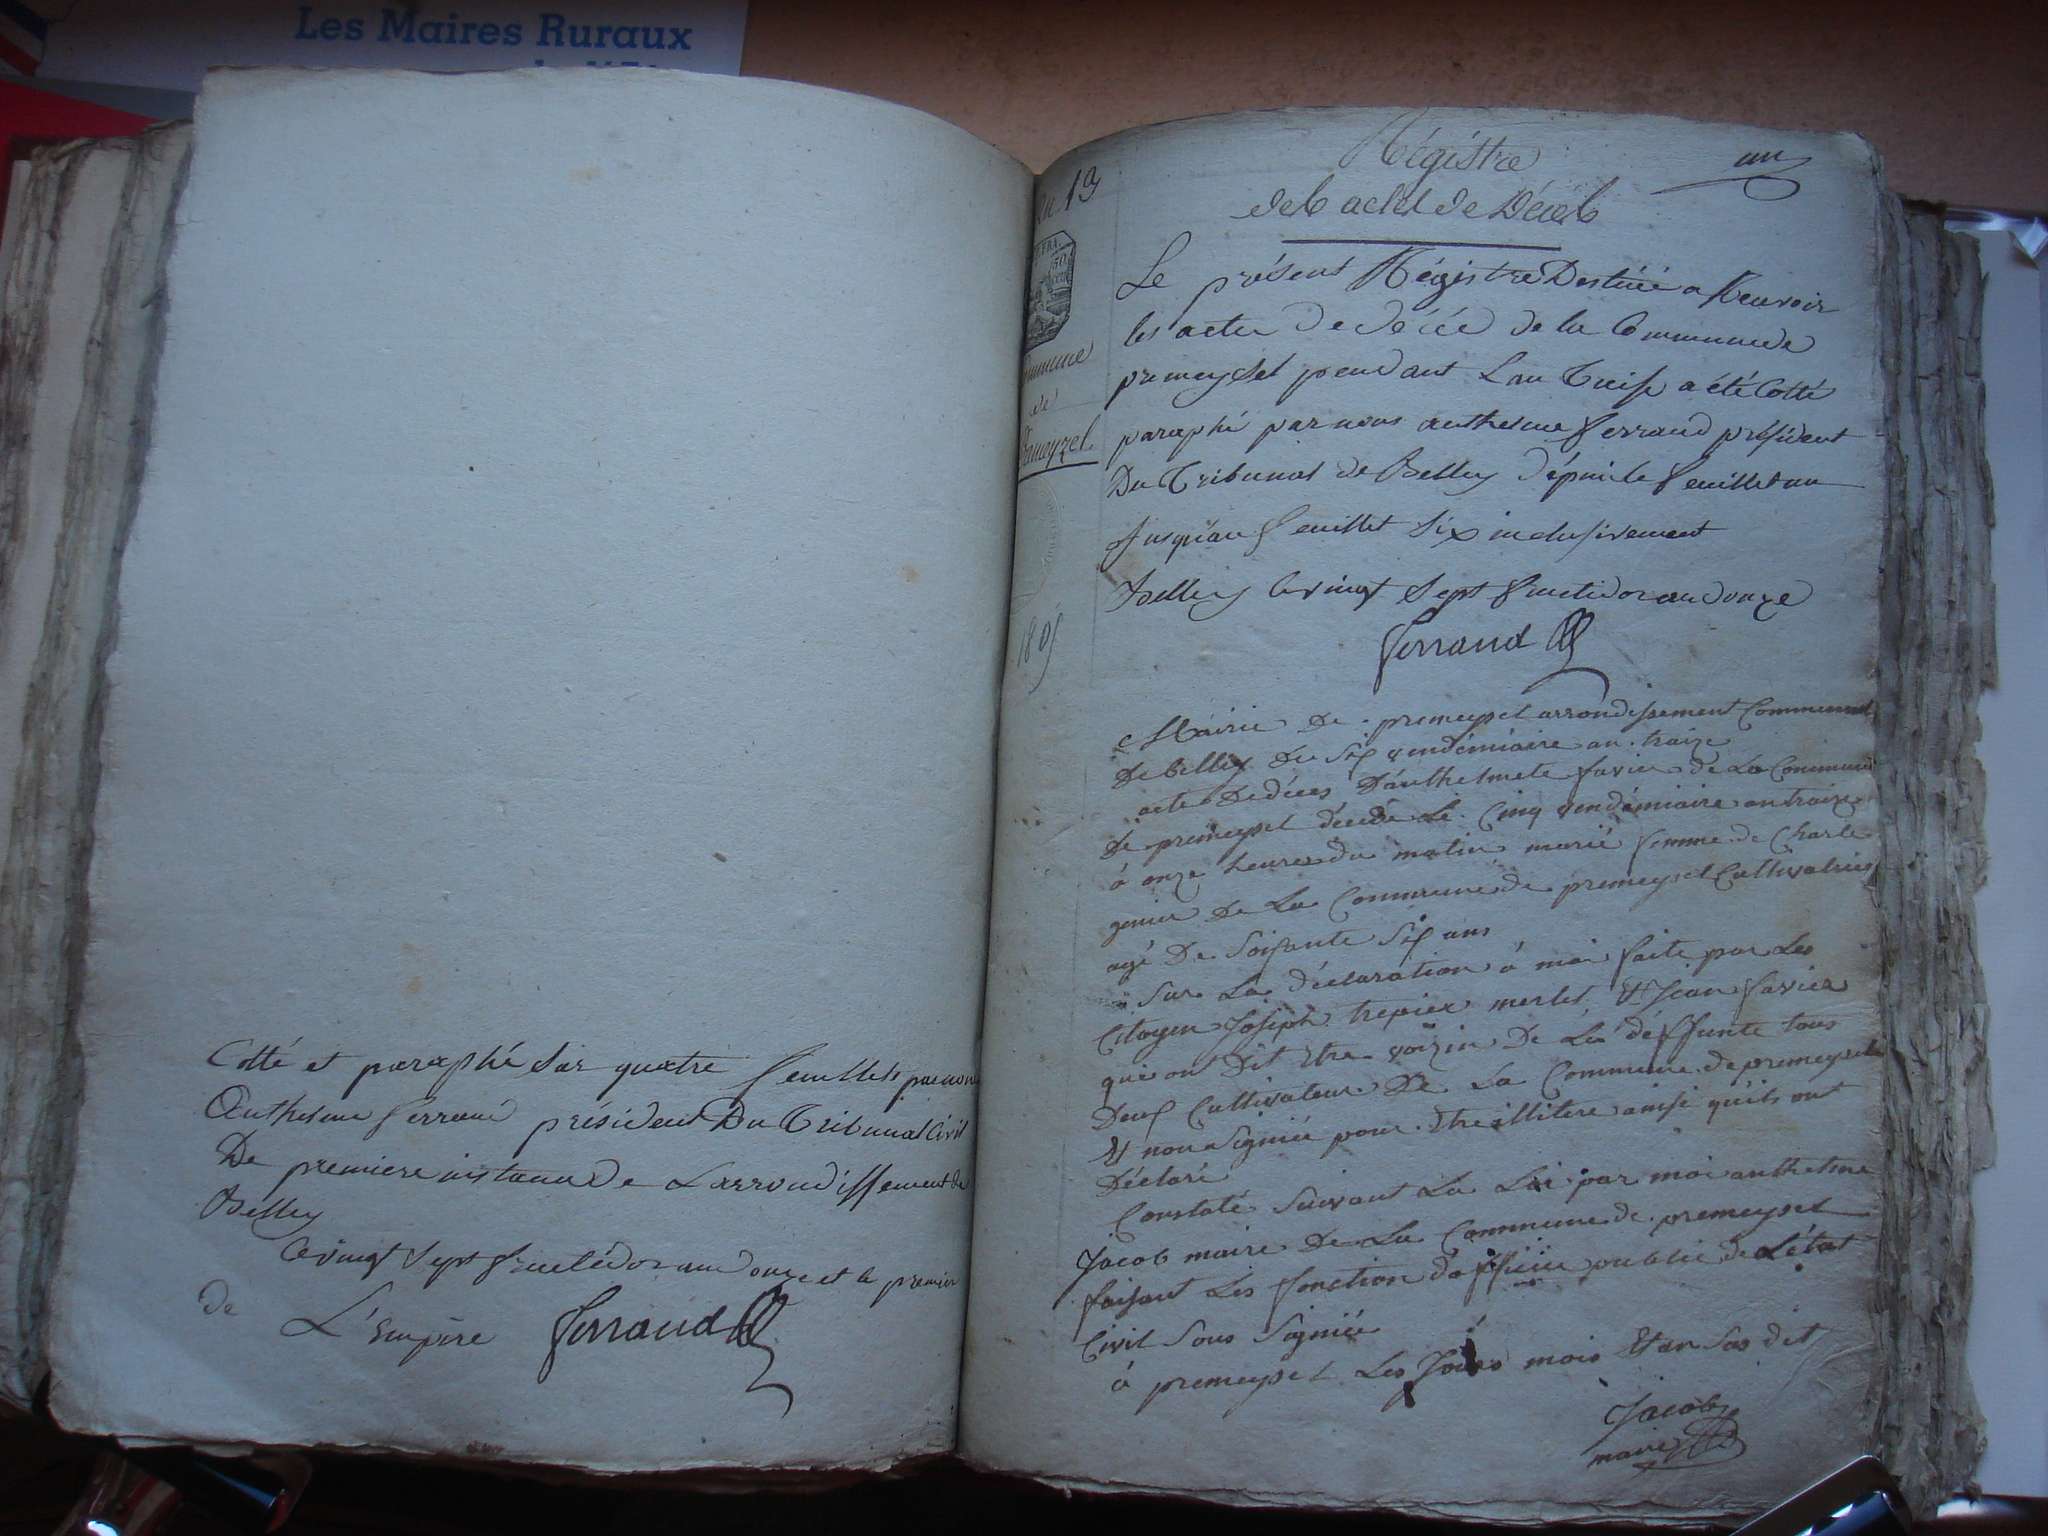 Les Maires Ruraux
Cotté et paraphé Sur quatre feuillets par nous
Anthelme ferrand président Du Tribunal Civil
De premiere instance De Larrondissement de
Belley
Ce vingt Sept fructidor an douze et le premier
de L'Empire ferrand
an 13
Commune
de
Prémeyzel
1805
Régistre
des actes de Décès
un
Le présent Régistre Destiné a Recevoir
les actes de décès de la Commune de
premeyzel pendant Lan Treise a été Cotté
paraphé par nous anthelme ferrand président
Du Tribunal de Belley dépuis le feuillet un
Jusqu'au feuillet Six inclusivement
Belley Ce vingt Sept fructidor an douze
ferrand
Mairie De premeysel arrondissement Communal
De belley Du Six vendémiaire an traize
acte De décès D'anthelmete favier de La Commune
De premeysel décédé Le Cinq vendémiaire an traize
à onze heures du matin marié femme de Charle
genin De La Commune de premeysel Cultivatrice
agé De Soisante Six ans
Sur La déclaration à moi faite par Les
Citoyen Joseph trepier merlet Et Jean favier
qui ont Dit Etre voizin De La déffunte tous
Deux Cultivateur De La Commune de premeysel
Et non Signié pour Etre illitere ainsi qu'ils ont
Déclaré
Constaté Suivant La Loi par moi anthelme
Jacob maire De La Commune de premeysel
faisant Les fonction d'officié public de L'état
Civil Sous Signié
à premeysel Les Jours mois Et an Sus dit
Jacob
maire